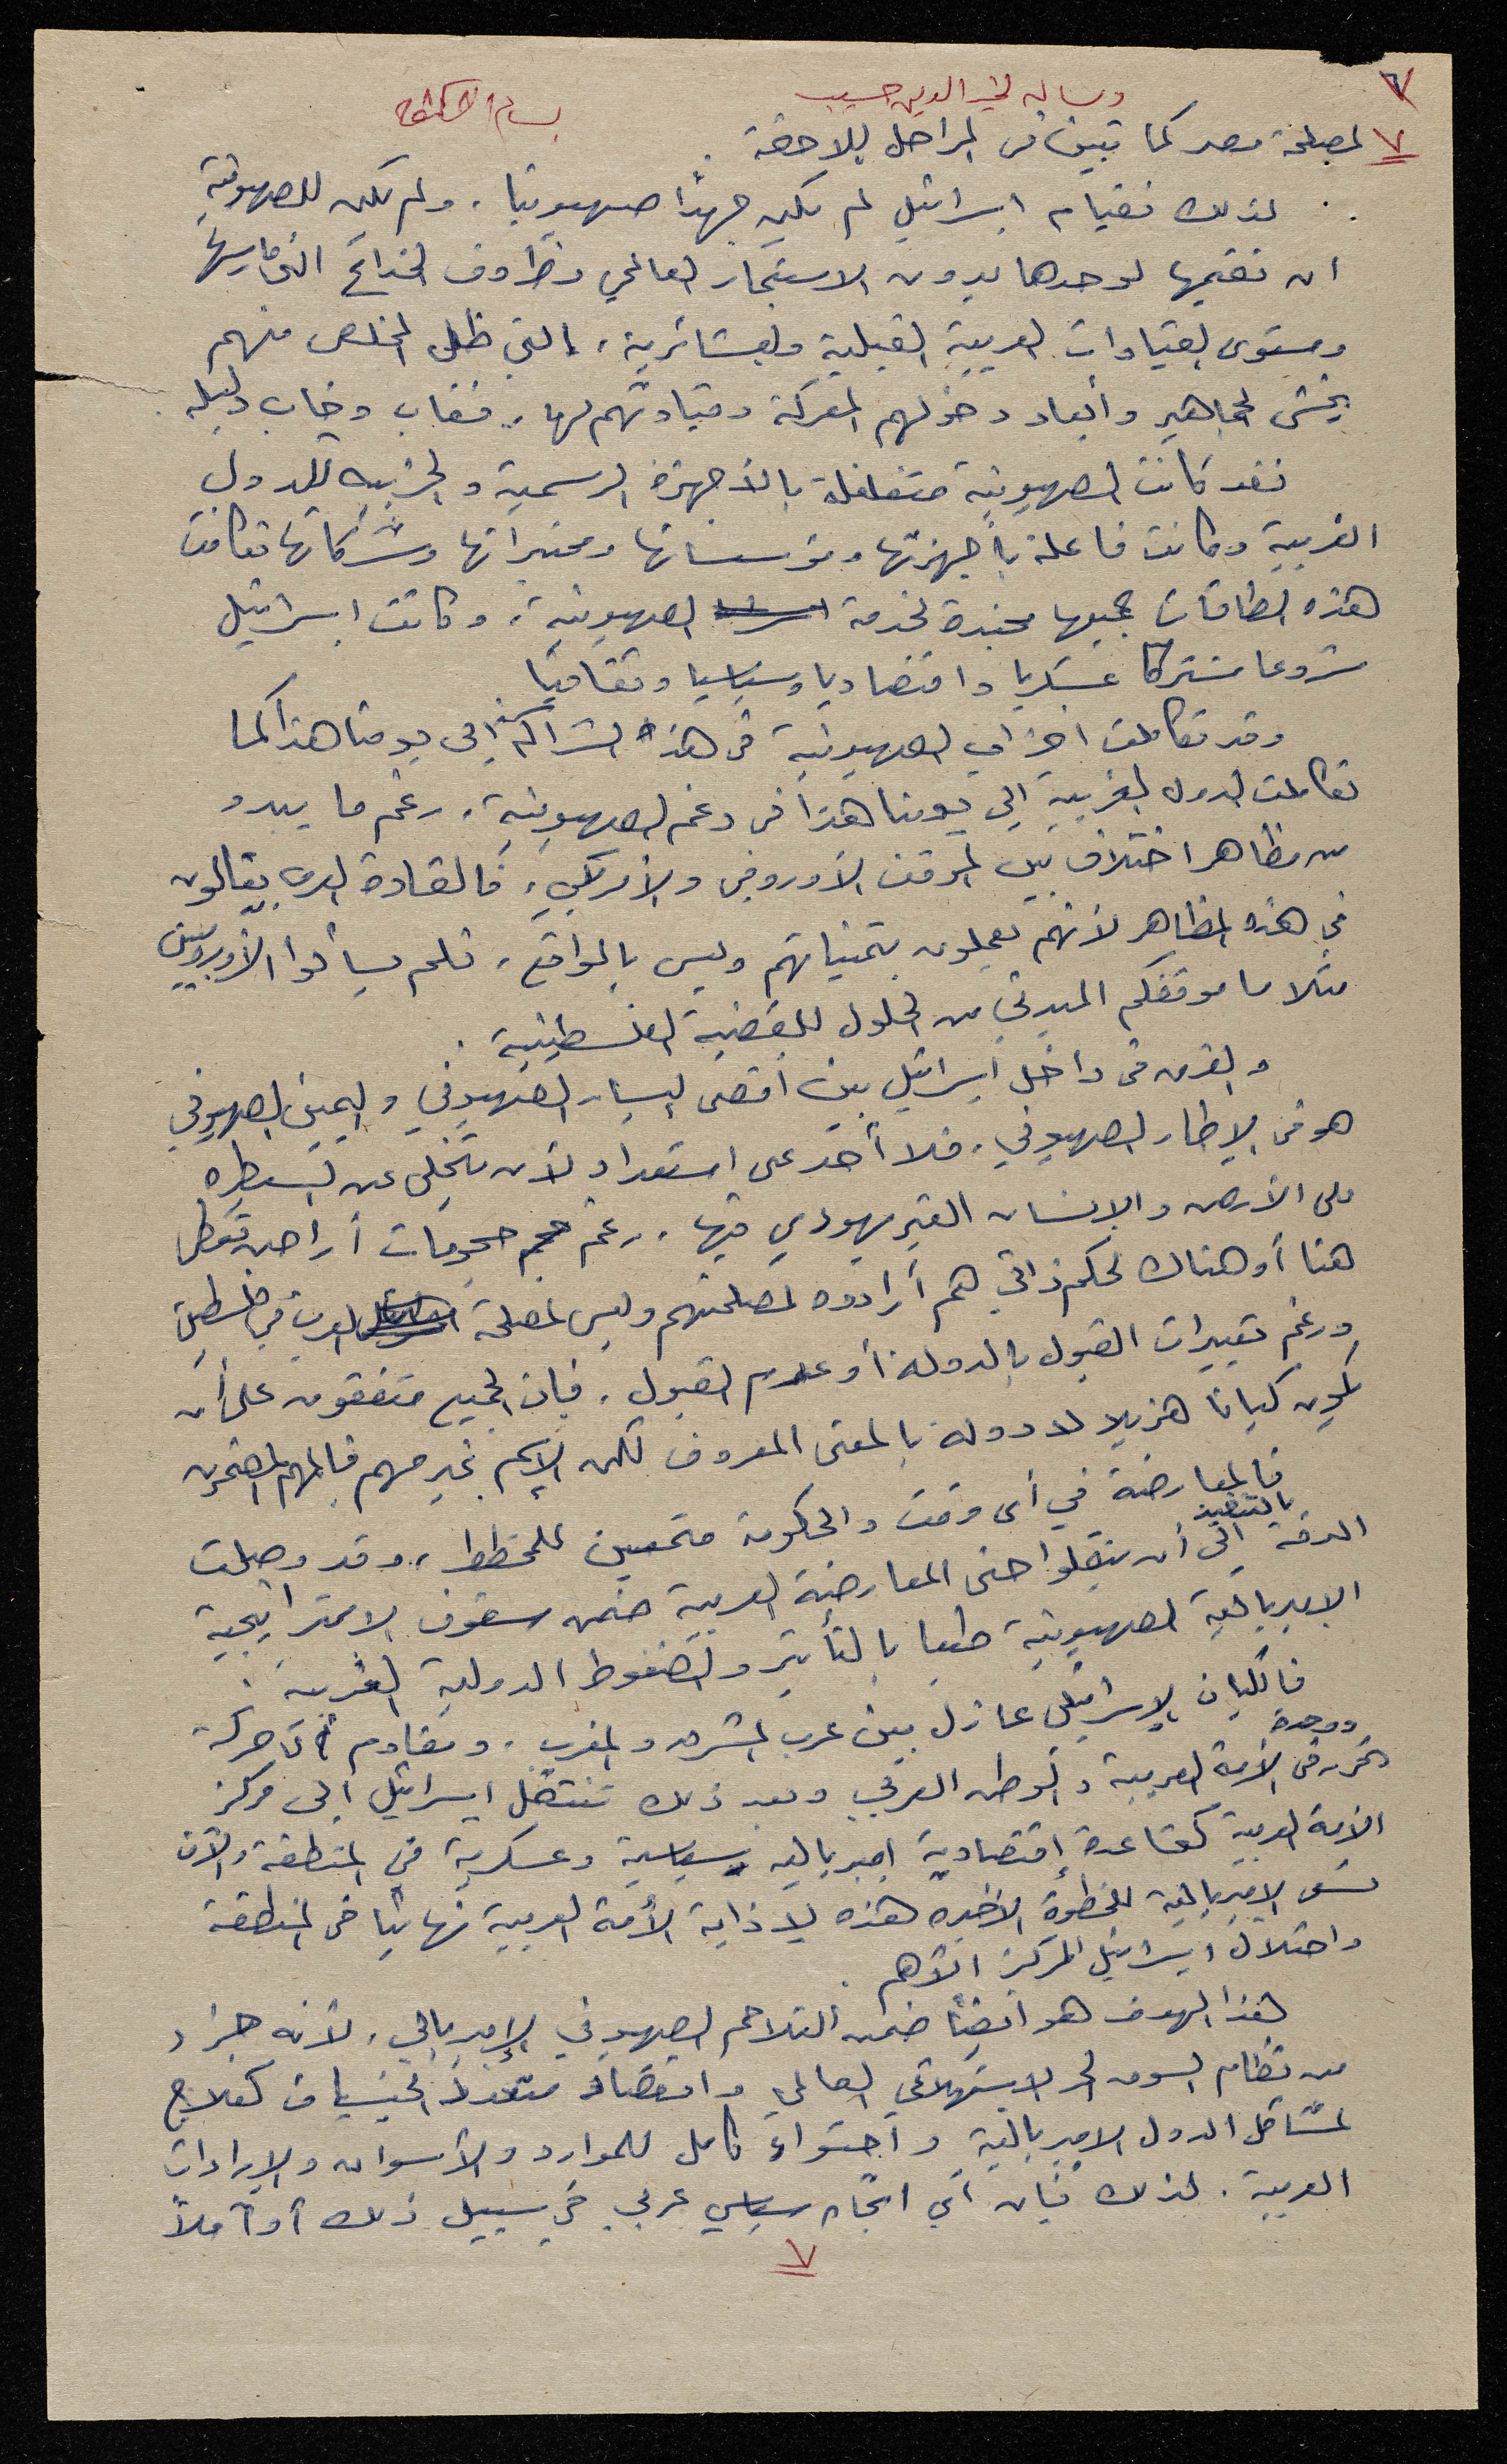 ٧
رسالة لخير الدين حسيب
بسام الشكعة
٧ لمصلحة مصر كما تبين في المراحل اللاحقة .
. . لذلك فقيام اسرائيل لم يكن جهدًا صهيونيا . ولم يكن للصهيونية
ان تقيمها لوحدها بدون الاستعمار العالمي وظروف الخداع التي مارسها
ومستوى القيادات العربية القبلية والعشائرية ، التي ظل المخلص منهم
يخشى الجماهير وأبعاد دخولهم المعركة وقيادتهم لها . فغاب وخاب دليله
فقد كانت الصهيونية متغلغلة بالأجهزة الرسمية والحزبية للدول
الغربية وكانت فاعلة بأجهزتها ومؤسساتها ومختبراتها وشركاتها فكانت
هذه الطاقات جميعها مجندة لخدمة الصهيونية ، وكانت اسرائيل
مشروعا مشتركا عسكريا واقتصاديا وسياسيا وثقافيا .
وقد تكاملت احزاب الصهيونية في هذه الشراكة الى يومنا هذا كما
تكاملت الدول الغربية الى يومنا هذا في دعم الصهيونية ، رغم ما يبدو
من مظاهر اختلاف بين الموقف الأوروبي والأمريكي ، فالقادة العرب يغالون
في هذه المظاهر لأنهم يعملون بتمنياتهم وليس بالواقع ، فلم يسألوا الأوروبيين
مثلا ما موقفكم المبدئي من الحلول للقضية الفلسطينية .
والفرق في داخل اسرائيل بين أقصى اليسار الصهيوني واليمين الصهيوني
هو في الإطار الصهيوني ، فلا أحد على استعداد لأن يتخلى عن السيطرة
على الأرض والإنسان الغير يهودي فيها . رغم حجم حجومات أراض تعطى
هنا أو هناك لحكم ذاتي هم أرادوه لمصلحتهم وليس لمصلحة العرب في فلسطين
ورغم تعبيرات القبول بالدولة أو عدم القبول . فإن الجميع متفقون على أن
تكون كيانا هزيلا لا دولة بالمعنى المعروف لكن الإسم غير مهم فالمهم المضمون
فالمعارضة في أي وقت والحكومة متممين للمخطط ، وقد وصلت
بالتنفيذ
الدقة الى أن ينقلوا حتى المعارضة العربية ضمن سقوف الاستراتيجية
الإمبريالية الصهيونية طبعا بالتأثير والضغوط الدولية الغربية .
فالكيان الإسرائيلي عازل بين عرب المشرق والمغرب . ومقاوم لأي حركة
ووحدة
تحرر في الأمة العربية والوطن العربي وبعد ذلك تنتقل اسرائيل الى مركز
الأمة العربية كقاعدة إقتصادية امبريالية وسياسية وعسكرية في المنطقة والآن
تسعى الإمبريالية للخطوة الأخيرة هذه لإذابة الأمة العربية نهائيًا في المنطقة
واحتلال اسرائيل المركز الأهم .
هذا الهدف هو أيضًا ضمن التلاحم الصهيوني الإمبريالي ، لأنه جزء
من نظام السوق الحر الاستهلاكي العالمي واقتصاد متعدد الجنسيات كعلاج
لمشاكل الدول الإمبريالية واحتواء كامل للموارد والأسواق والإيرادات
العربية . لذلك فإن أي اتجاه سياسي عربي في سبيل ذلك أو آملاً
٧